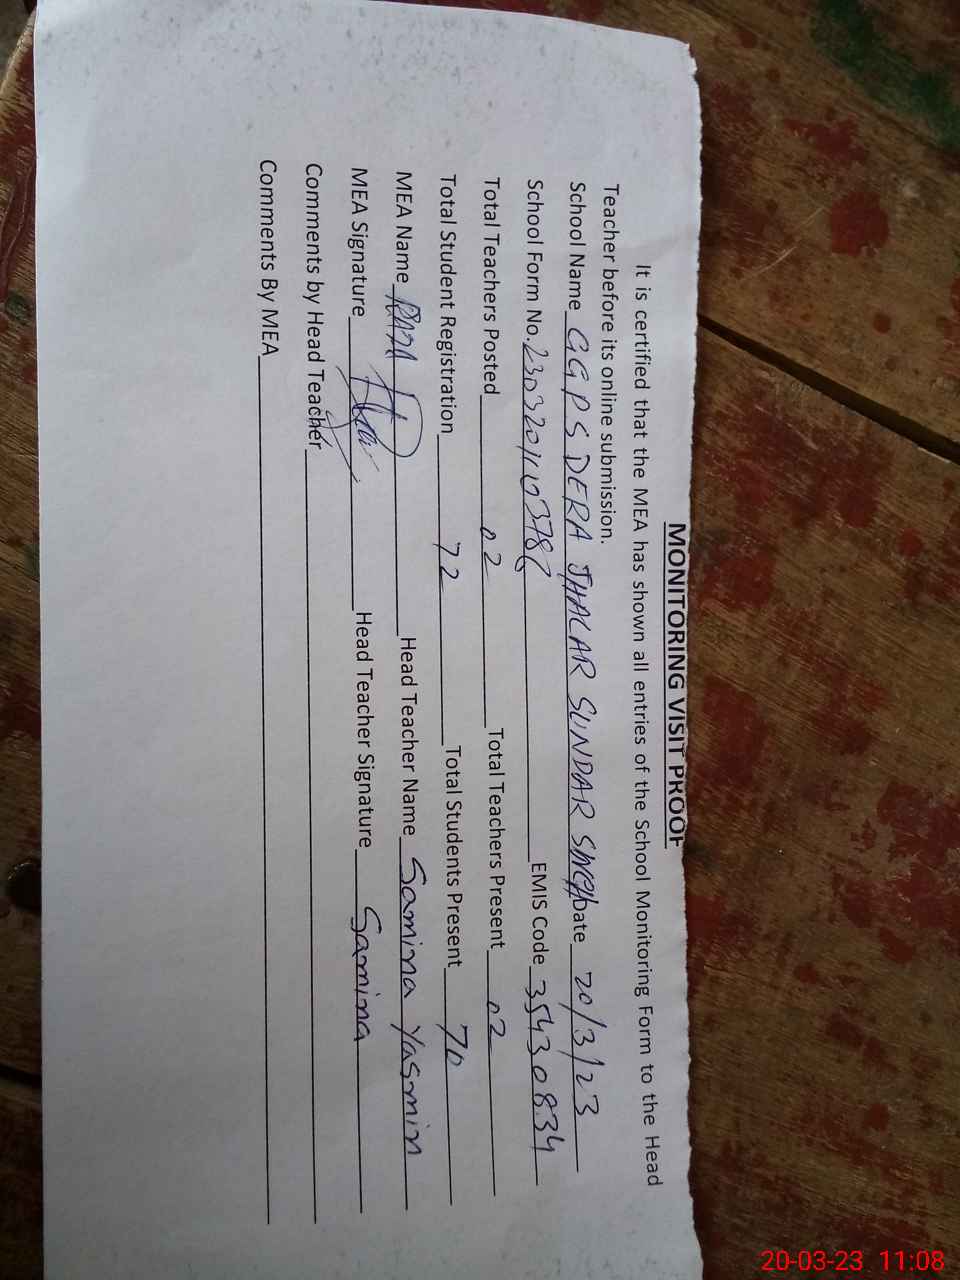 MONITORING VISIT PROOF
It is certified that the MEA has shown all entries of the School Monitoring Form to the Head
Teacher before its online submission.
School Name GGPS DERA JHALAR SUNDAR SINGH Date 20/3/23
School Form No. EMIS Code 35430834
Total Teachers Posted 02 Total Teachers Present 02
Total Student Registration 72 Total Students Present 70
MEA Name Head Teacher Name Samina Yasmin
MEA Signature Head Teacher Signature Samina
Comments by Head Teacher
Comments By MEA
20-03-23 11:08